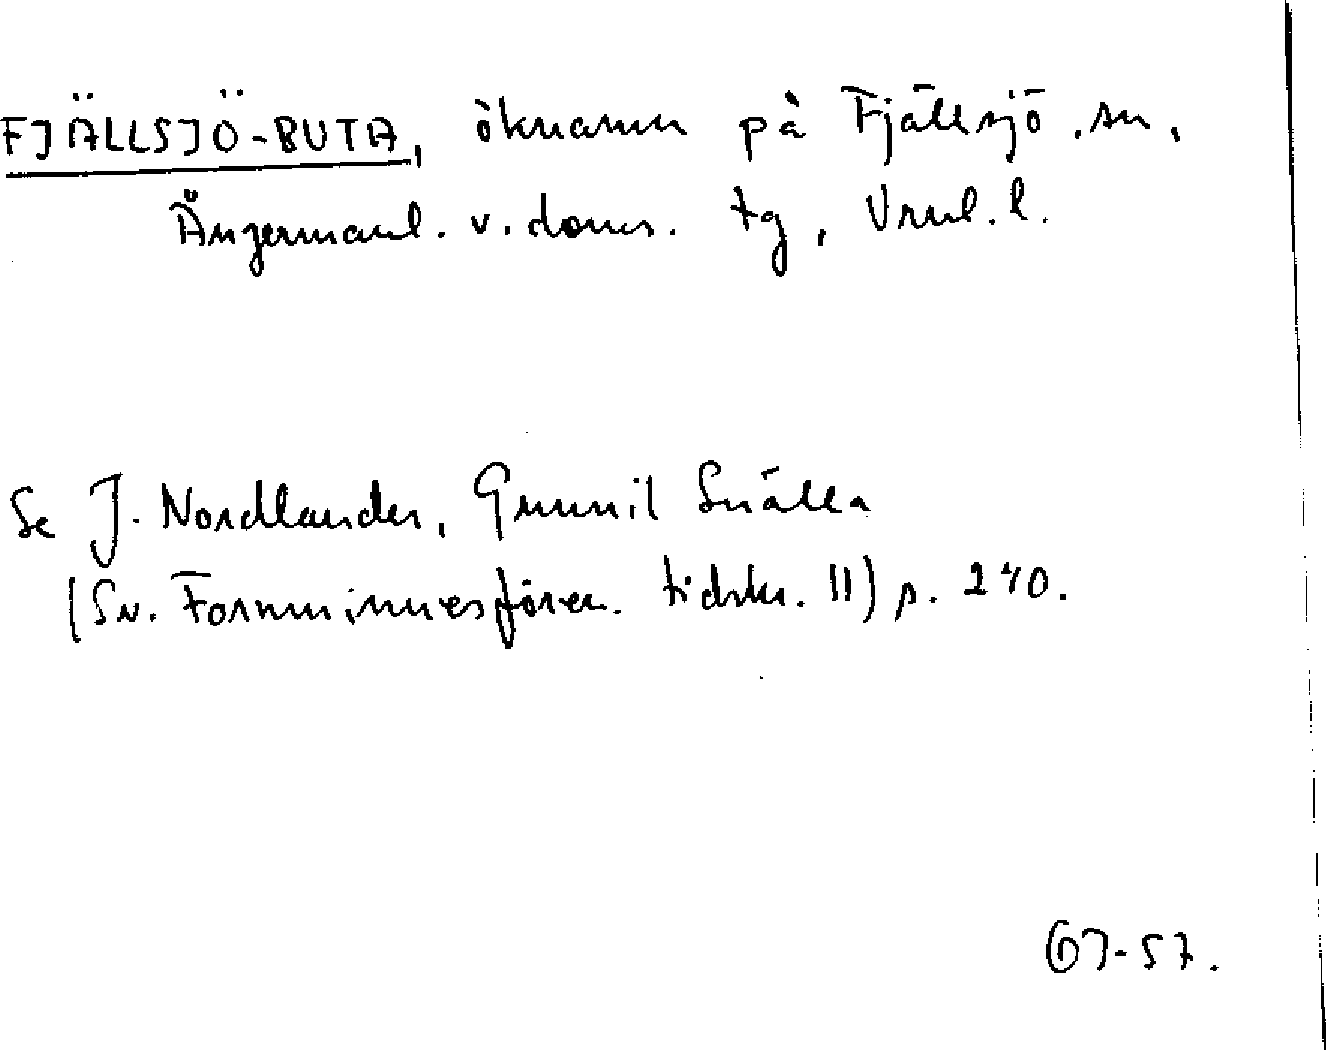 FJÄLLSJÖ-BUTA, öknamn på Fjällsjö sn,
Ångermanl. v. doms. tg, Vrnl. l.
Se J. Nordlander, Gunnil Snälla
(Sv. Fornminnesfören. tidskr. 11) p. 240.
67-57.